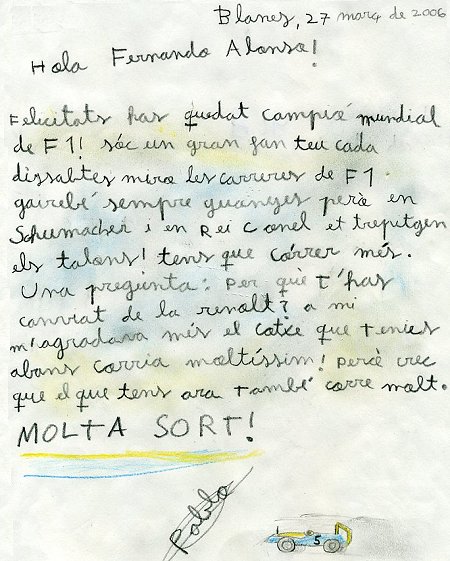 Blanes, 27 març de 2006
Hola Fernando Alonso!
Felicitats has quedat campió mundial
de F1! sóc un gran fan teu cada
dissabtes miro les carreres de F1
gairebé sempre guanyes però en
Schumacher i en Rei Conel et treputgen
els talons! tens que córrer més.
Una pregunta: per què t'has
canviat de la renolt? a mi
m'agradava més el cotxe que tenies
abans corria moltíssim! però crec
que el que tens ara també corre molt.
MOLTA SORT!
Pablo
5